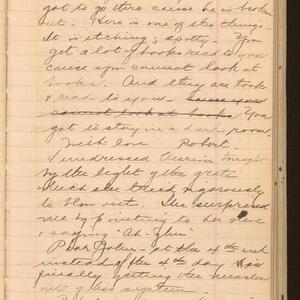 got to go thro cause he is broken
out. Here is one of the things
It is itching; spotty. You
get a lot of books read to you
cause you cannot look at
books. And they are took
& read to you. cause you
cannot look at books You
got to stay in a dark room.
With love Robert.
I undressed
by the light of the grate
which she tried vigorously
to blow out. She surprised
me by pointing to her nose
& saying "Ah-
Poor John - at the 4th week
instead of the 4th day is
finally getting the measles
out of his system.